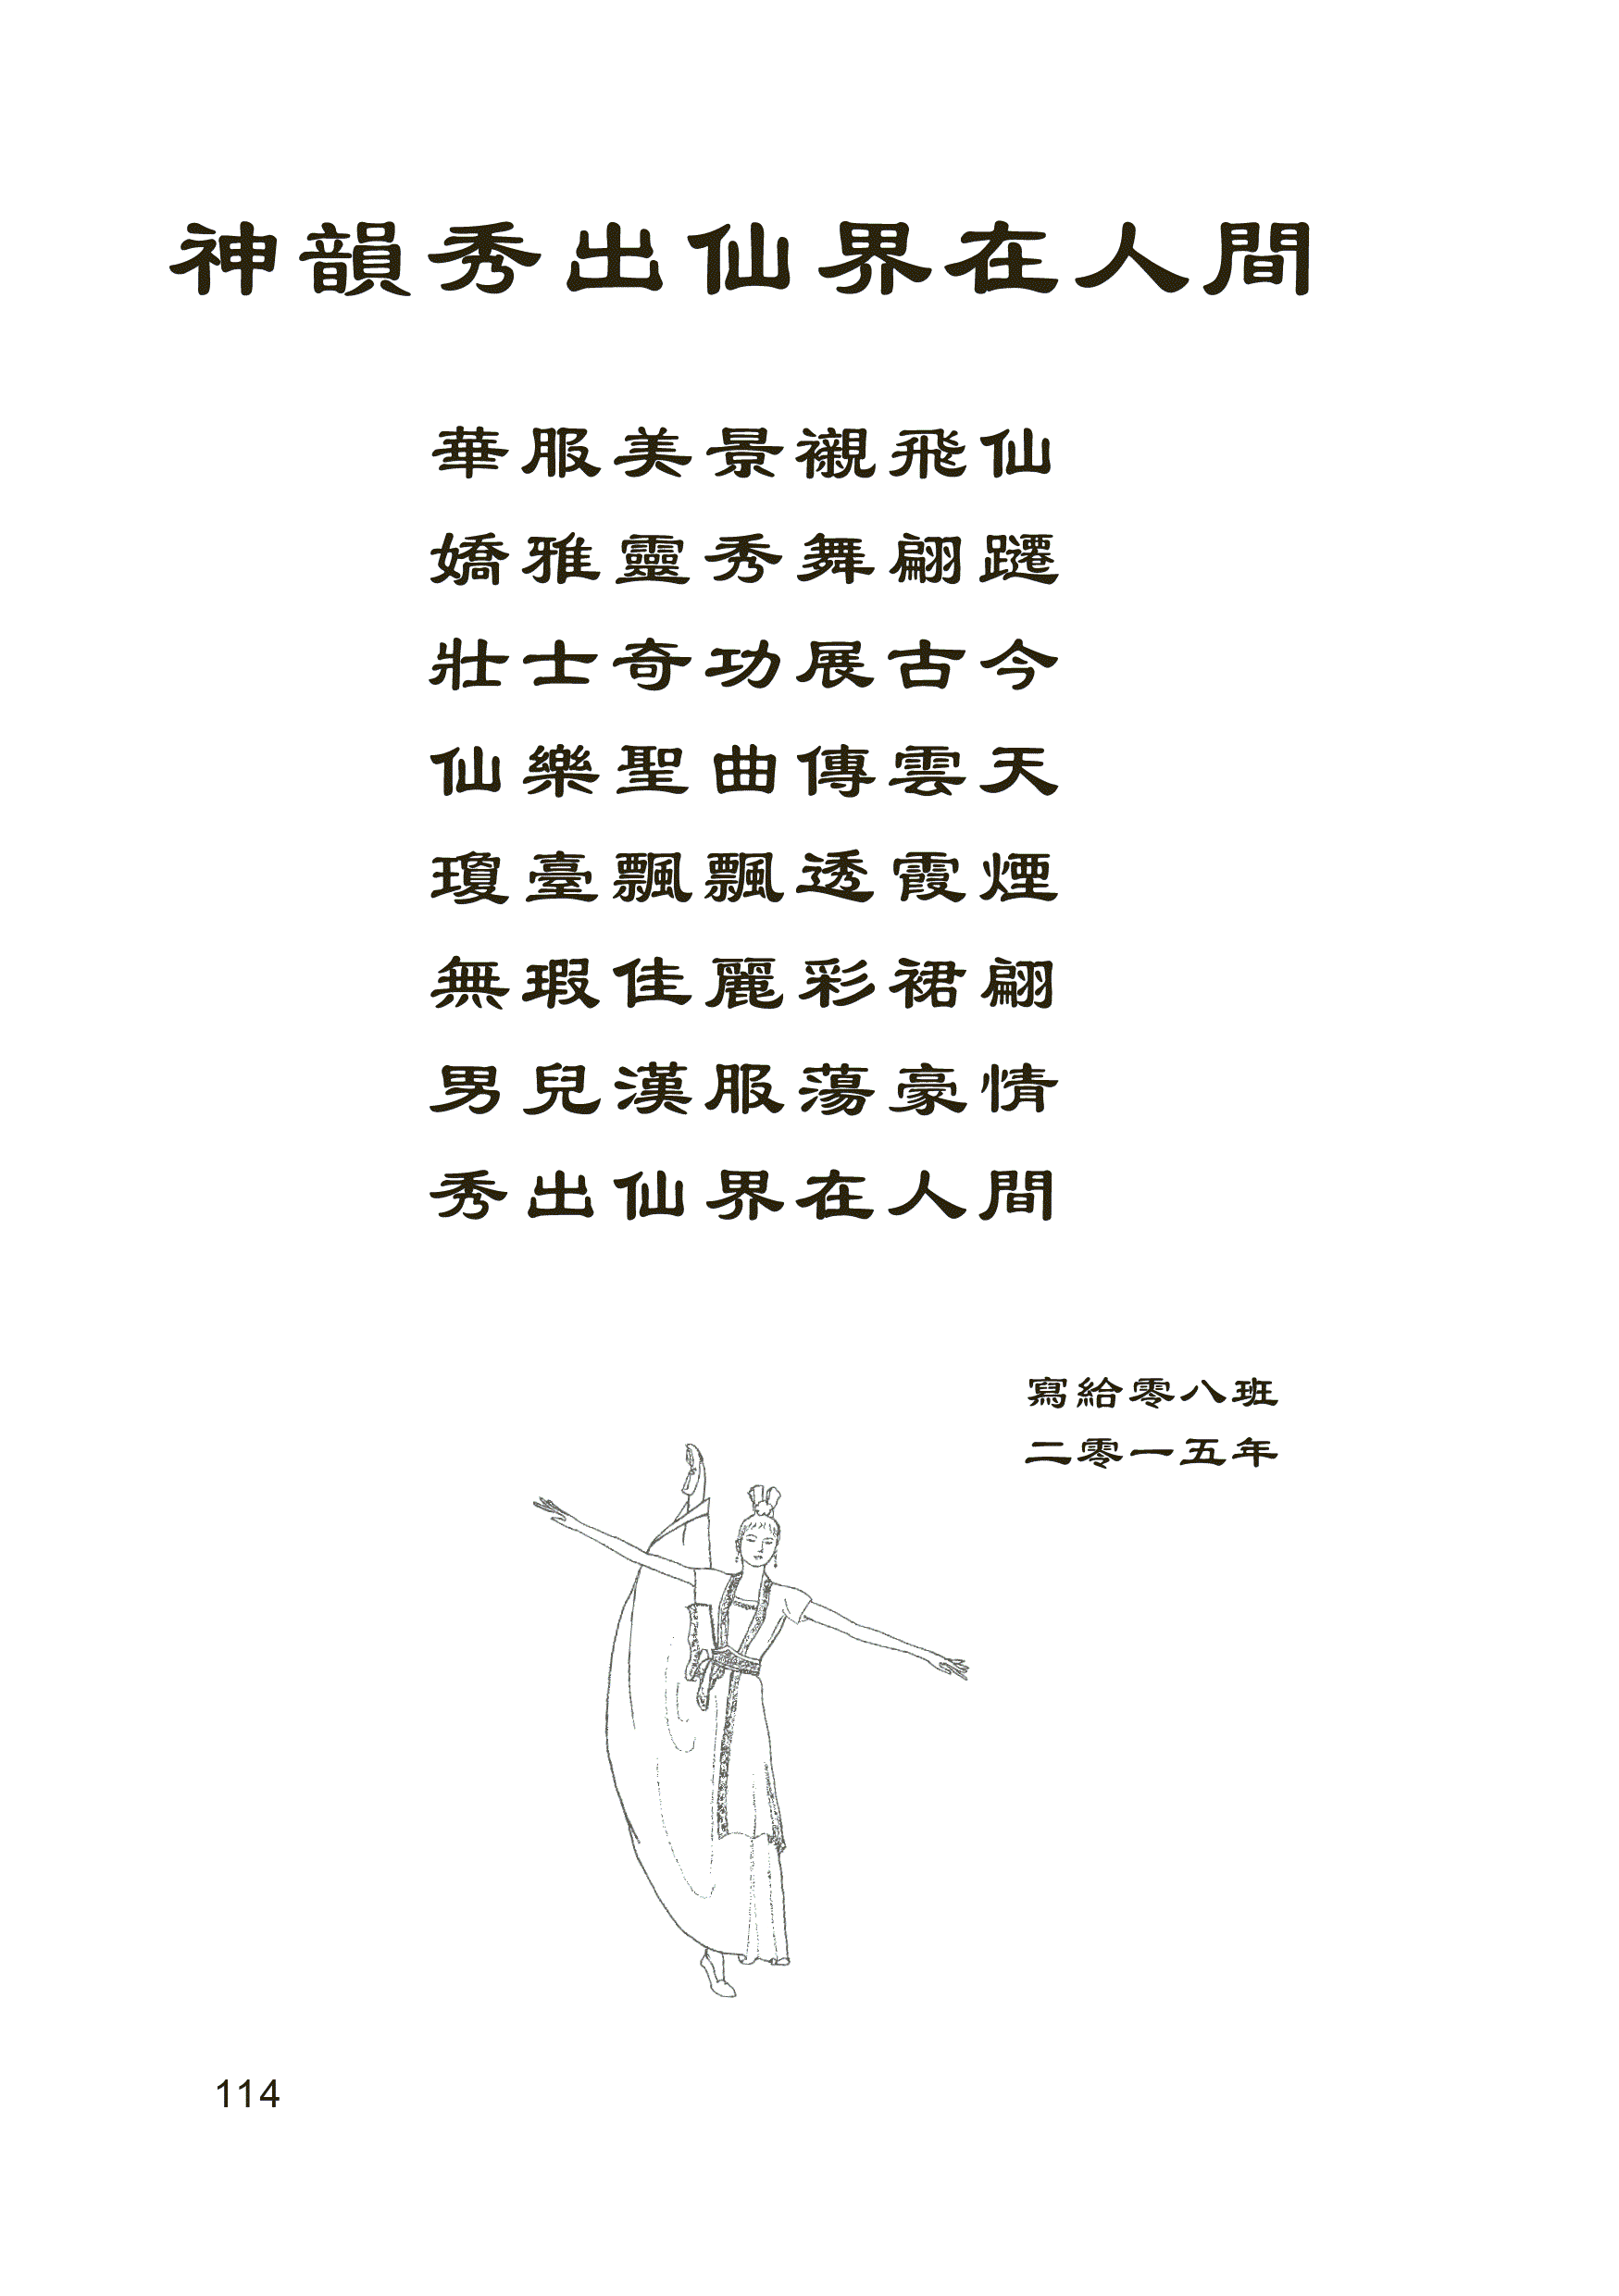 神韻秀出仙界在人間
華服美景襯飛仙
嬌雅靈秀舞翩躚
壯士奇功展古今
仙樂聖曲傳雲天
瓊臺飄飄透霞煙
無瑕佳麗彩裙翩
男兒漢服蕩豪情
秀出仙界在人間
寫給零八班
二零一五年
114